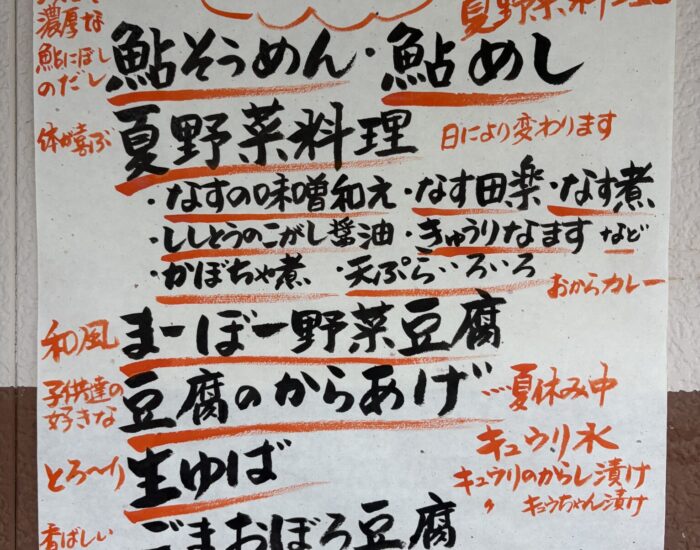 濃厚な
鮎にぼし
のだし
夏野菜料理
鮎そうめん・鮎めし
体が喜ぶ
夏野菜料理
日により変わります
・なすの味噌和え・なす田楽・なす煮
・ししとうのこがし醤油・きゅうりなます など
・かぼちゃ煮 ・天ぷらいろいろ
おからカレー
和風
まーぼー野菜豆腐
子供達の
好きな
豆腐のからあげ
…夏休み中
とろ〜り
生ゆば
キュウリ水
キュウリのからし漬け
〃 キュウちゃん漬け
香ばしい
ごまおぼろ豆腐